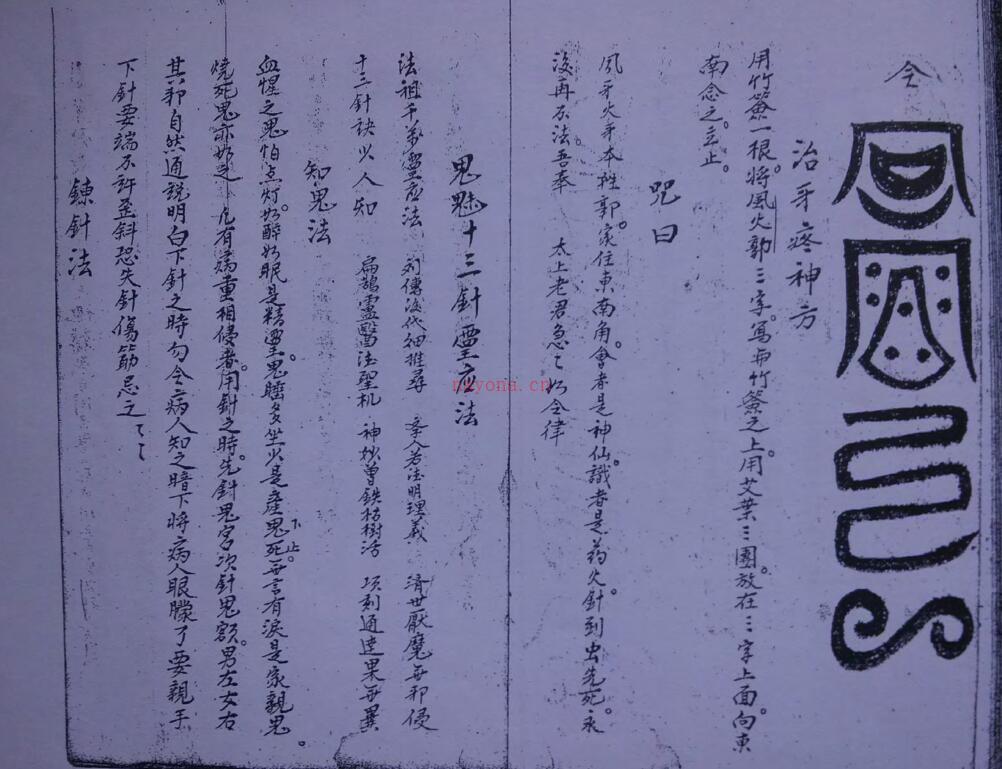 仝
治牙疼神方
用竹簽一根。將風火郭三字。寫於竹簽之上。用艾葉三團。放在三字上面。向東
南念之。立止。
咒曰
風牙火牙本姓郭。家住東南角。會者是神仙。識者是药。火針到虫先死。永
後再不法。吾奉 太上老君急々如令律
鬼魅十三針靈应法
法祖千萬靈应法 列傳後代細推尋 李人若法明理義 濟世厭魔每邪侵
十三針訣少人知 扁鵲靈醫法聖机 神妙曾鉄枯樹活 項刻通達果每異
知鬼法
血惺之鬼怕点灯。如醉如眠是精靈。鬼瞎多坐火是產鬼死。每言有淚是家親鬼。
下止。
燒死鬼亦如之 凡有病重相侵者。用針之時。先針鬼宮次針鬼額。男左女右
其邪自然通說明白下針之時勿令病人知之暗下將病人眼矇了要親手
下針要端不許歪斜恐失針傷筋忌之々々
鍊針法
nayona.cn